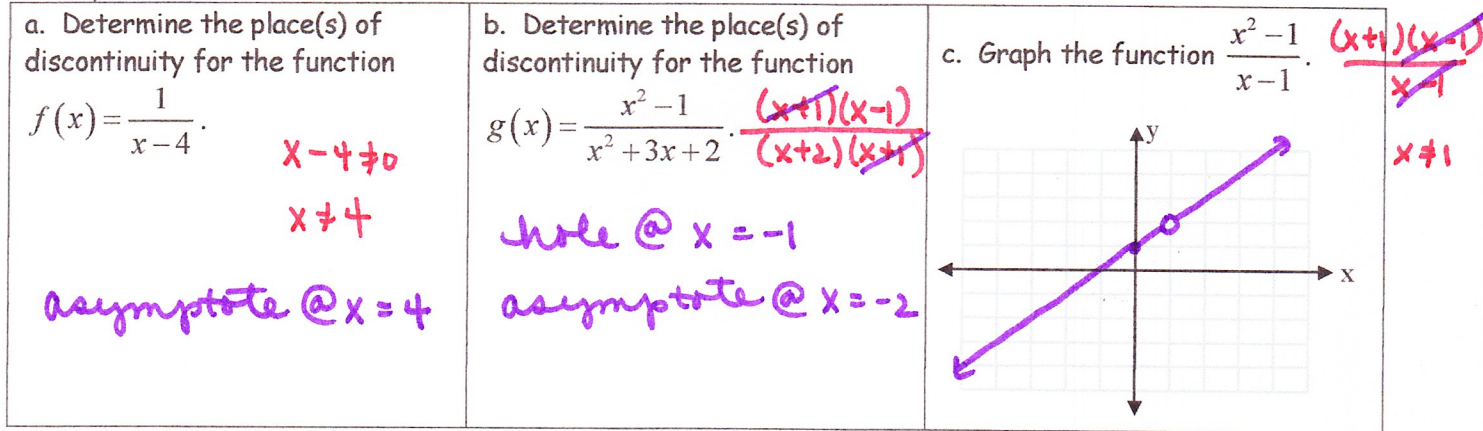 a. Determine the place(s) of
discontinuity for the function
f(x) = 1/(x-4).
x-4≠0
x≠4
asymptote @ x = 4
b. Determine the place(s) of
discontinuity for the function
g(x) = (x² -1)/(x² +3x+2). (x+1)(x-1)/(x+2)(x+1)
hole @ x = -1
asymptote @ x = -2
c. Graph the function (x² -1)/(x-1). (x+1)(x-1)/x-1
x≠1
y
x